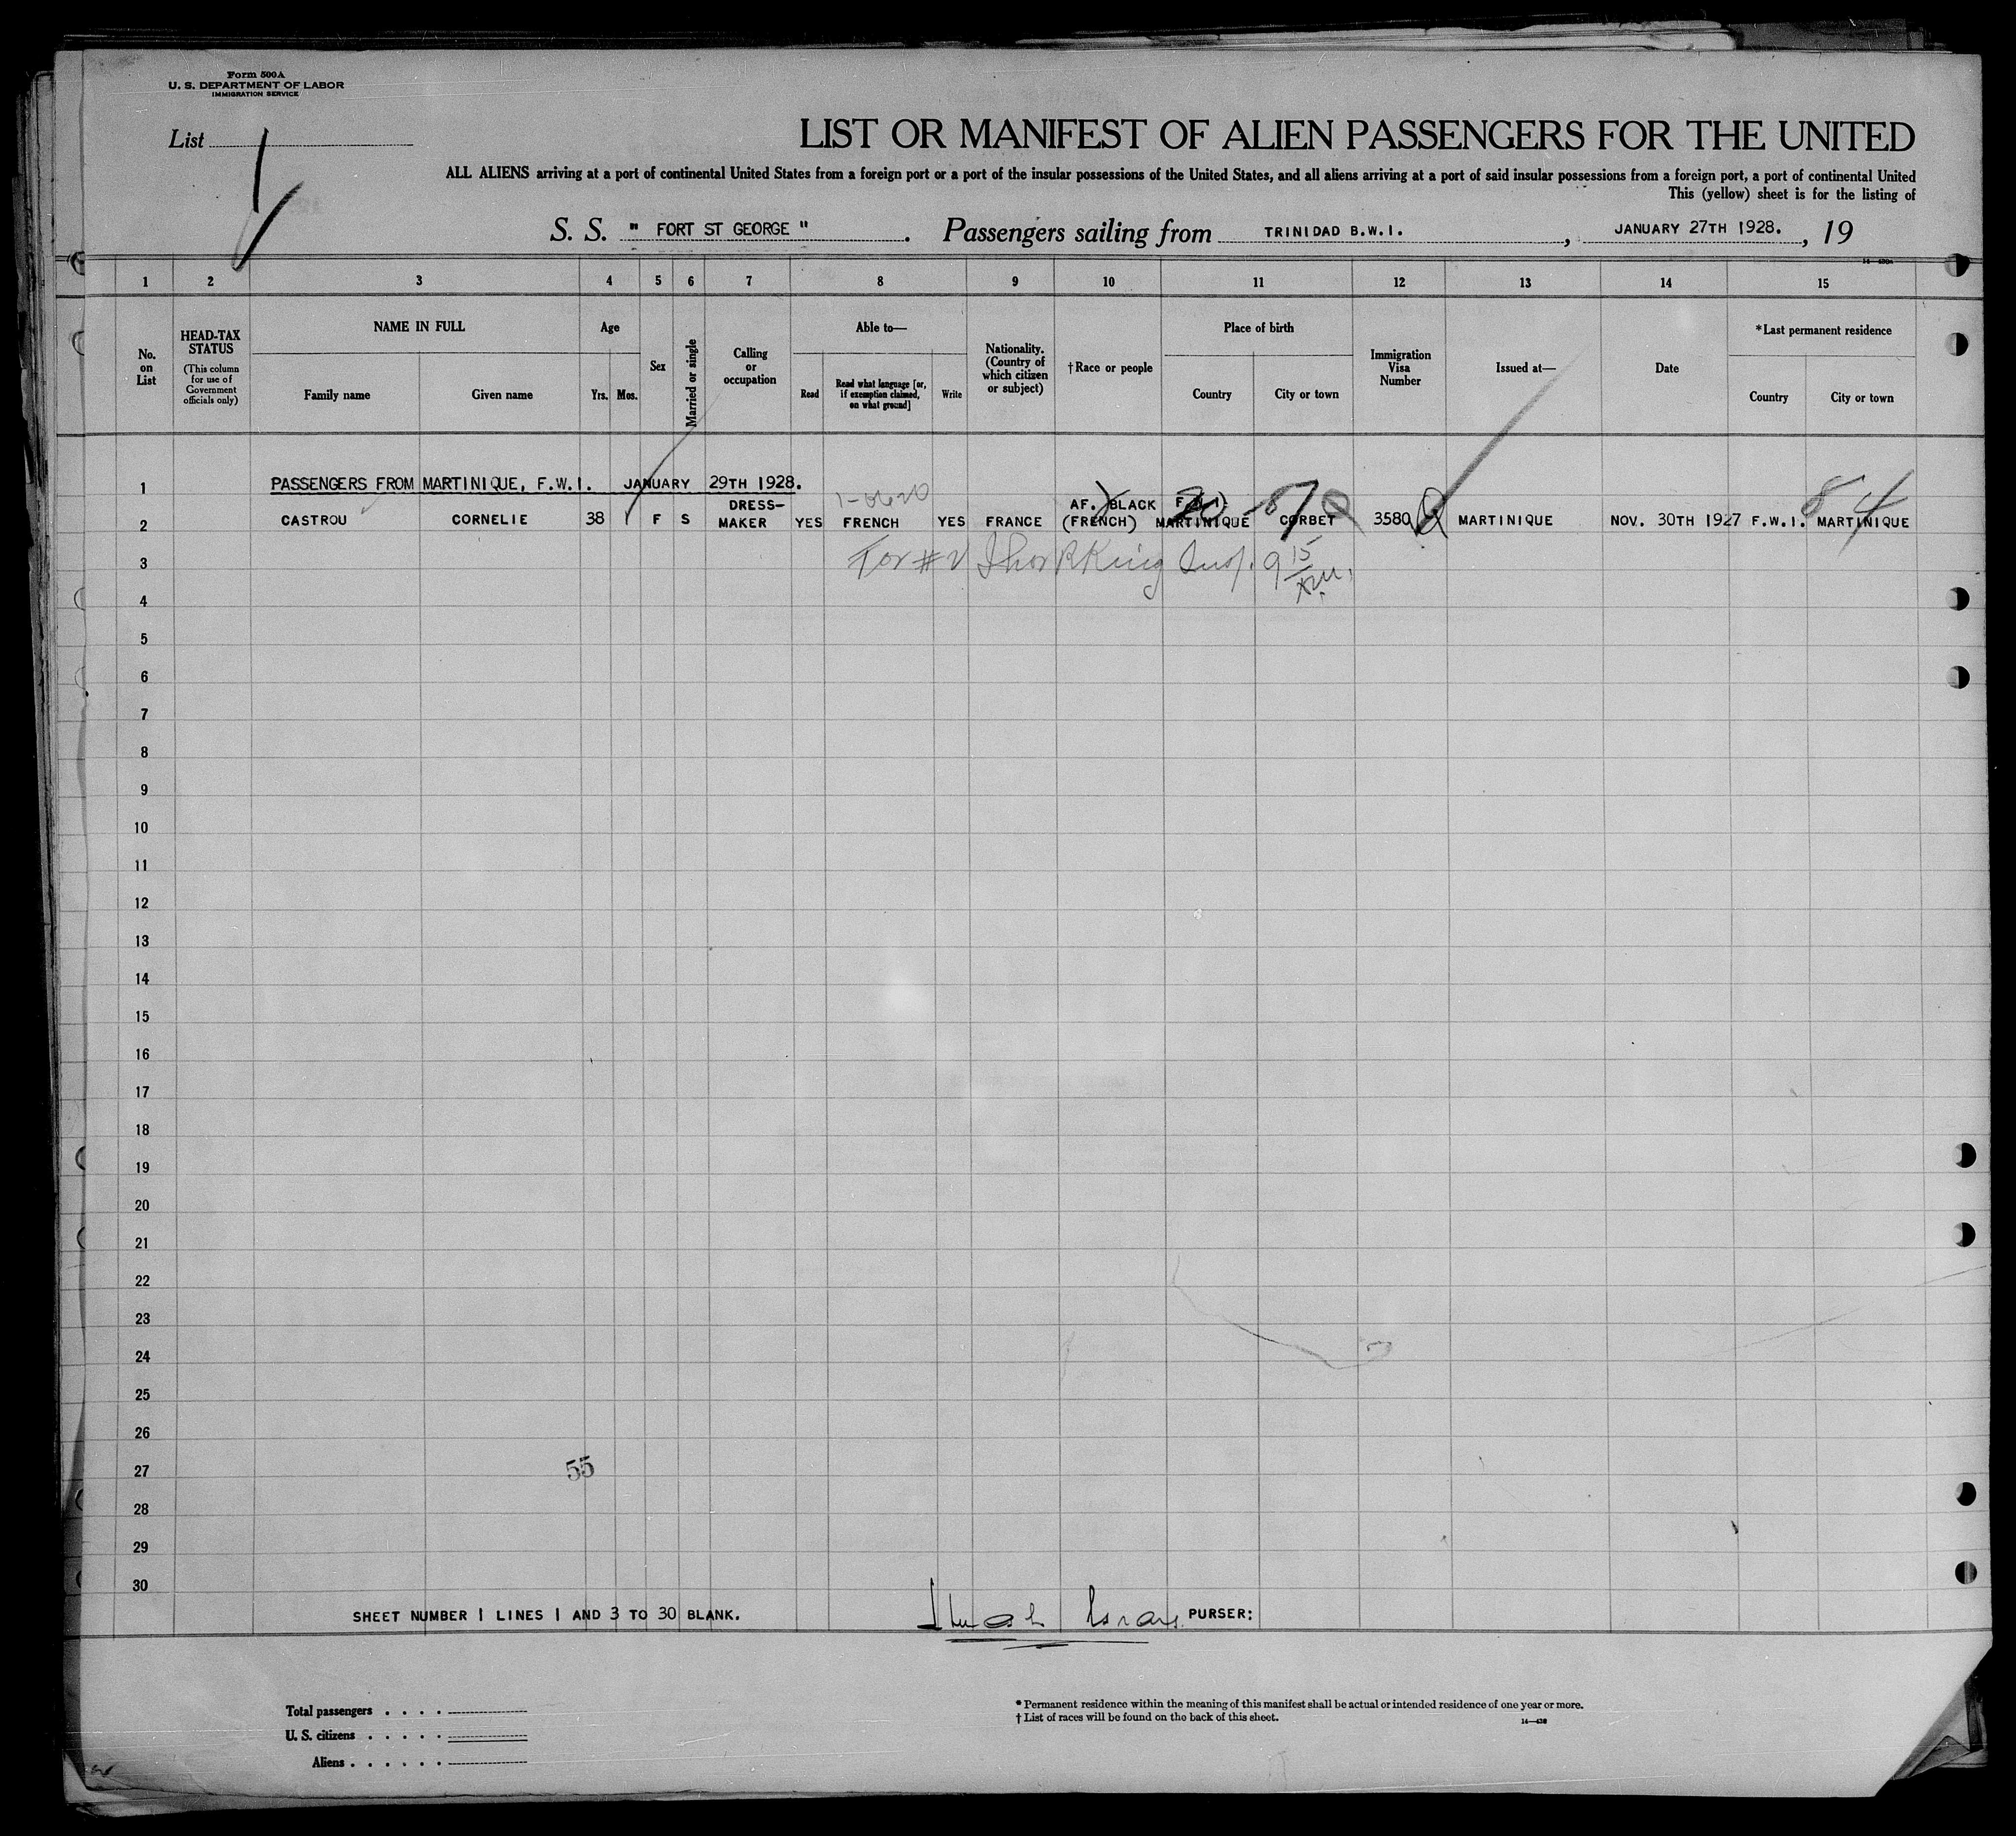 Form 500A
U. S. DEPARTMENT OF LABOR
IMMIGRATION SERVICE
List
LIST OR MANIFEST OF ALIEN PASSENGERS FOR THE UNITED
ALL ALIENS arriving at a port of continental United States from a foreign port or a port of the insular possessions of the United States, and all aliens arriving at a port of said insular possessions from a foreign port, a port of continental United
This (yellow) sheet is for the listing of
S. S. " FORT ST GEORGE ". Passengers sailing from TRINIDAD B.W.I. , JANUARY 27TH 1928. , 19
1 2 3 4 5 6 7 8 9 10 11 12 13 14 15
No. on List
HEAD-TAX STATUS
(This column for use of Government officials only)
NAME IN FULL
Family name Given name
Age
Yrs. Mos.
Sex
Married or single
Calling or occupation
Able to—
Read
Read what language [or, if exemption claimed, on what ground]
Write
Nationality. (Country of which citizen or subject)
†Race or people
Place of birth
Country City or town
Immigration Visa Number
Issued at—
Date
*Last permanent residence
Country City or town
1 PASSENGERS FROM MARTINIQUE, F.W.I. JANUARY 29TH 1928.
2 CASTROU CORNELIE 38 F S DRESS-MAKER YES FRENCH YES FRANCE AF. BLACK (FRENCH) F.W.I. MARTINIQUE CORBET 3580 MARTINIQUE NOV. 30TH 1927 F.W.I. MARTINIQUE
54
3 For #2 King Insp. 9 15 AM.
4
5
6
7
8
9
10
11
12
13
14
15
16
17
18
19
20
21
22
23
24
25
26
27 55
28
29
30
SHEET NUMBER 1 LINES 1 AND 3 TO 30 BLANK. PURSER:
Total passengers . . . .
U. S. citizens . . . . .
Aliens . . . . . .
* Permanent residence within the meaning of this manifest shall be actual or intended residence of one year or more.
† List of races will be found on the back of this sheet.